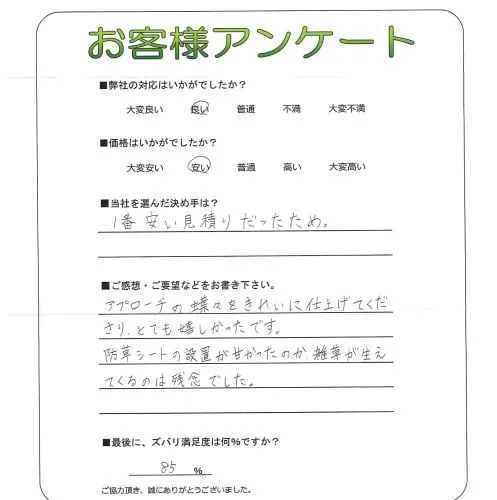 お客様アンケート
■弊社の対応はいかがでしたか？
大変良い 良い 普通 不満 大変不満
■価格はいかがでしたか？
大変安い 安い 普通 高い 大変高い
■当社を選んだ決め手は？
1番安い見積りだったため。
■ご感想・ご要望などをお書き下さい。
アプローチの蝶々をきれいに仕上げてくだ
さり、とても嬉しかったです。
防草シートの設置が甘かったのか、雑草が生え
てくるのは残念でした。
■最後に、ズバリ満足度は何%ですか？
85 %
ご協力頂き、誠にありがとうございました。